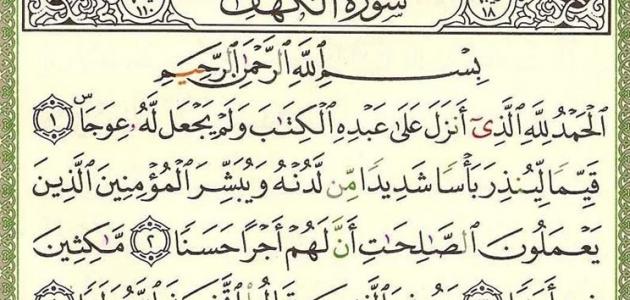 سورة الكهف
١٨
١١٠
بِسْمِ ٱللَّهِ ٱلرَّحْمَٰنِ ٱلرَّحِيمِ
ٱلْحَمْدُ لِلَّهِ ٱلَّذِىٓ أَنزَلَ عَلَىٰ عَبْدِهِ ٱلْكِتَٰبَ وَلَمْ يَجْعَل لَّهُۥ عِوَجَاۜ ١
قَيِّمًا لِّيُنذِرَ بَأْسًا شَدِيدًا مِّن لَّدُنْهُ وَيُبَشِّرَ ٱلْمُؤْمِنِينَ ٱلَّذِينَ
يَعْمَلُونَ ٱلصَّٰلِحَٰتِ أَنَّ لَهُمْ أَجْرًا حَسَنًا ٢ مَّٰكِثِينَ